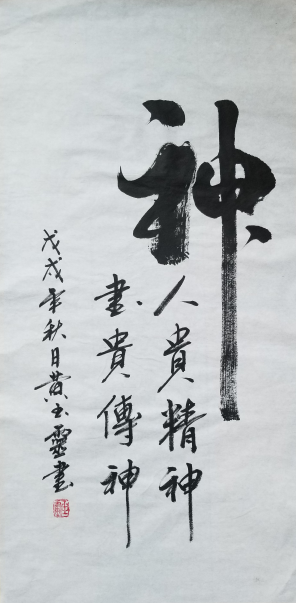 神
人貴精神
畫貴傳神
戊戌年秋日黄土靈書